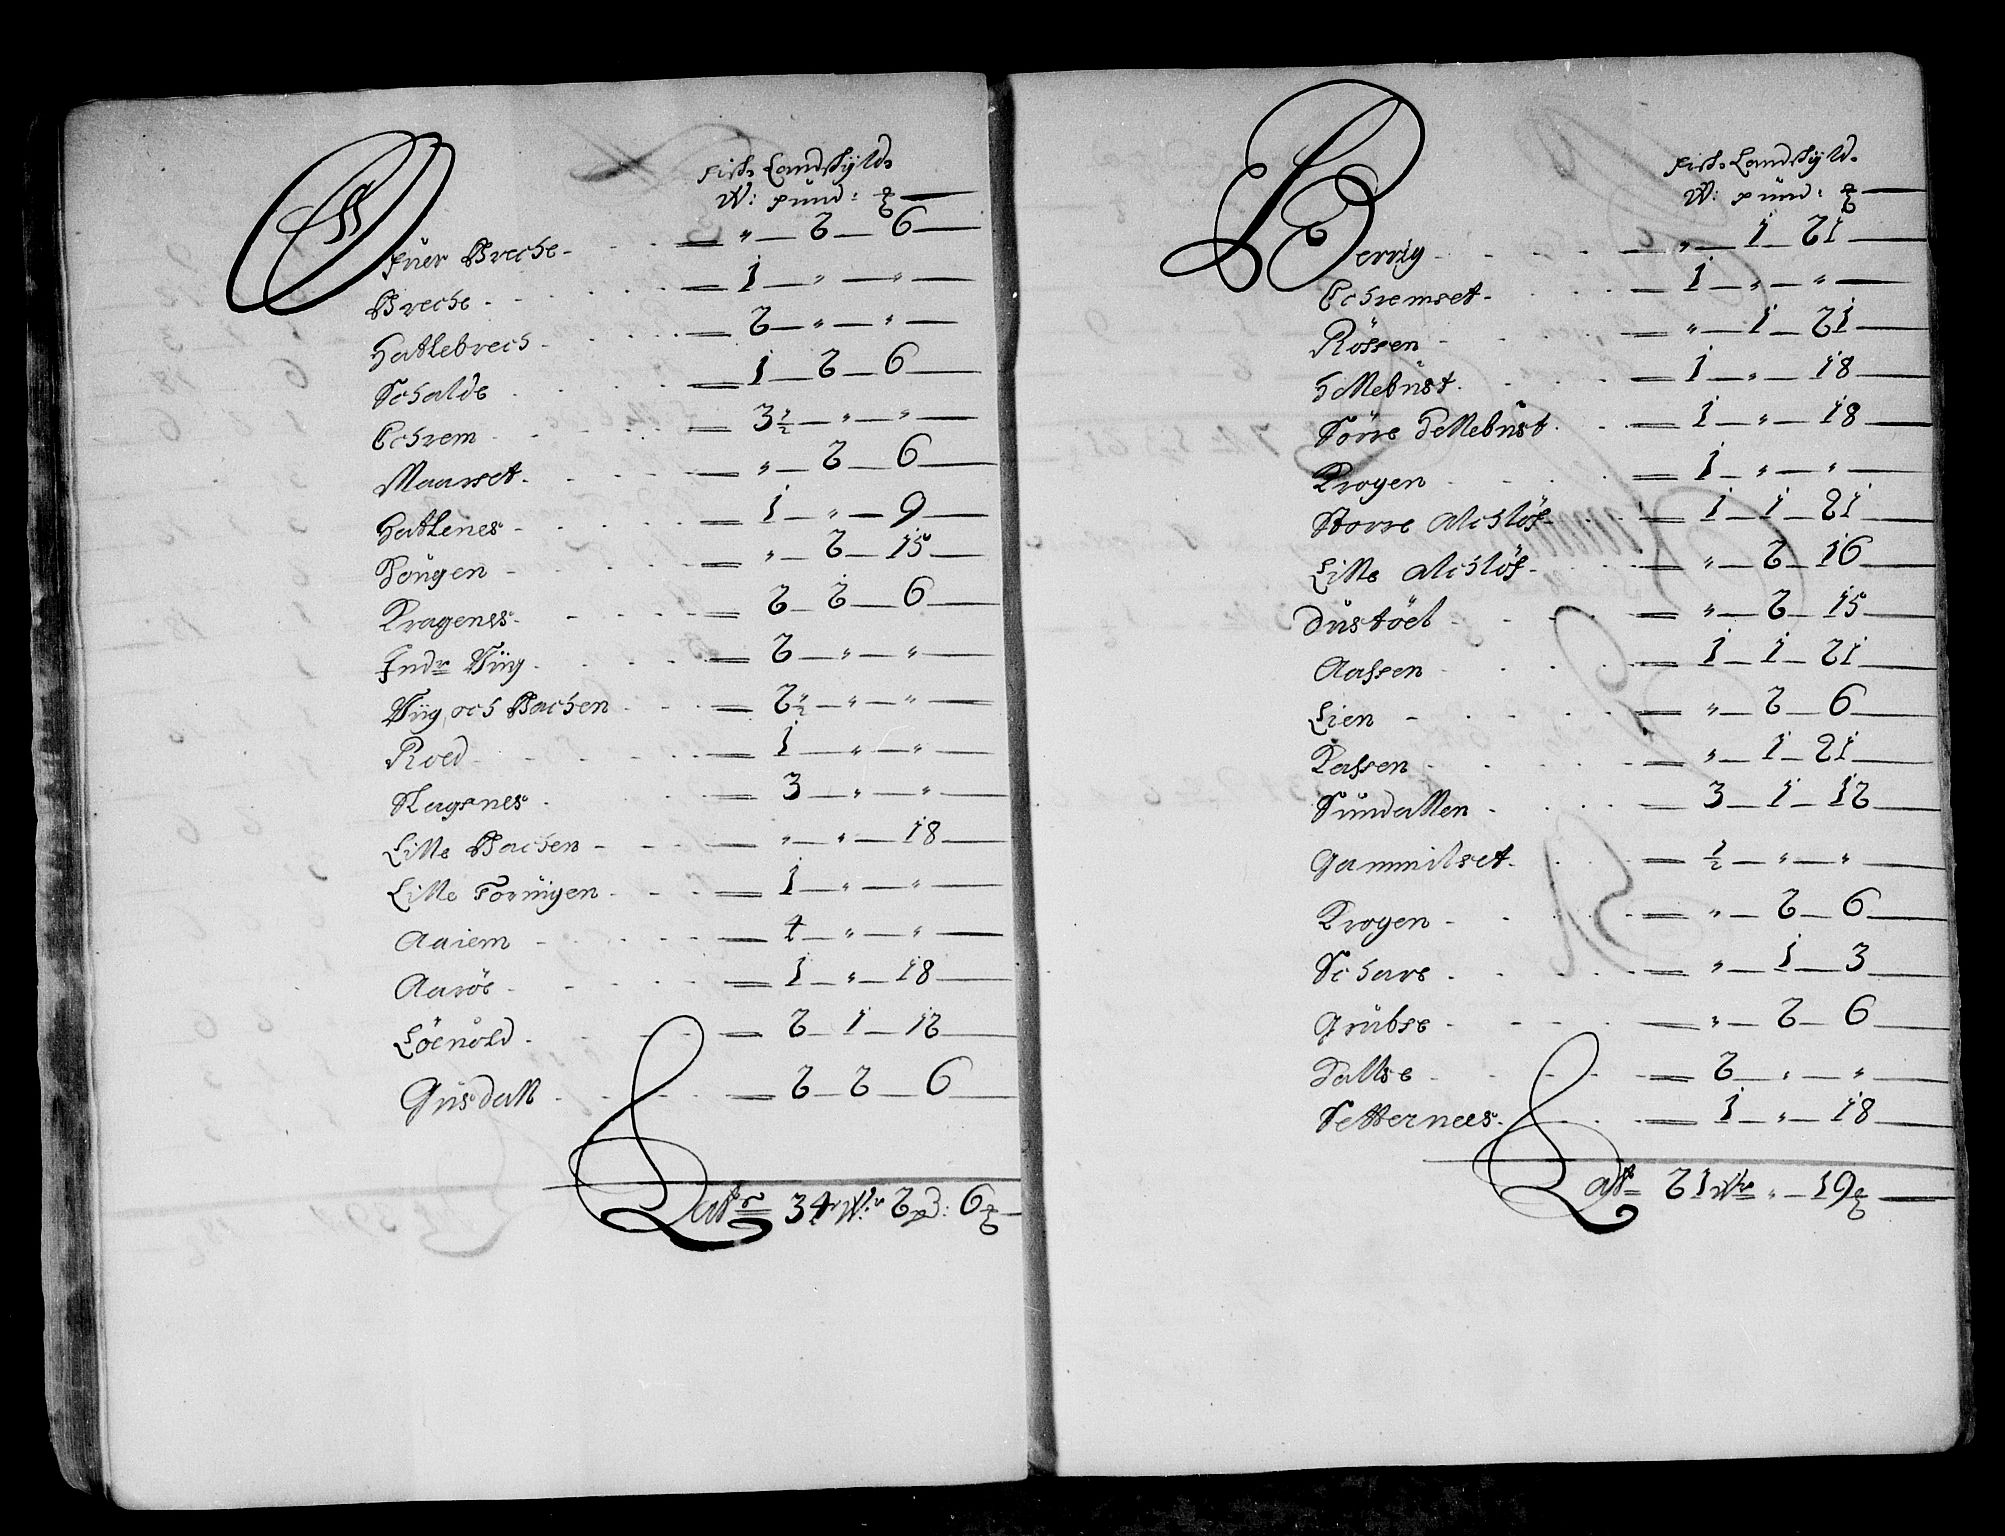 Fisk: Landskÿld:
W: pund: ℔
Ofuer Breche - „ - 2 - 6
Breche - 1 - „ - „
Hatlebrech - 2 - „ - „
Schalde - 1 - 2 - 6
Echrem - 3½ - „ - „
Maarset - „ - 2 - 6
Hatlenes - 1 - „ - 9
Hougen - „ - 2 - 15
Kragenes - 2 - 2 - 6
Indr Viig - 2 - „ - „
Viig och Bachen - 2½ - „ - „
Roed - 1 - „ - „
Slagsnes - 3 - „ - „
Lille Bachen - „ - „ - 18
Lille - 1 - „ - „
Aaiem - 4 - „ - „
Aaröe - 1 - „ - 18
Löenold - 2 - 1 - 12
Gusdall - 2 - 2 - 6
Latr 34 Wr 2 pd: 6 ℔
Fisk: Landskÿld:
W: pund: ℔
Berrig - „ - 1 - 21
Echremset - 1 - „ - „
Rössen - „ - 1 - 21
Hellebust - 1 - „ - 18
Sörre Hellebust - 1 - „ - 18
Krogen - 1 - „ - „
Storre Alchlöf - 1 - 1 - 21
Lille Alchlöf - „ - 2 - 16
Dustöel - „ - 2 - 15
Aassen - 1 - 1 - 21
Lien - „ - 2 - 6
Kassen - „ - 1 - 21
Sundallen - 3 - 1 - 12
Gammilset - ½ - „ - „
Krogen - „ - 2 - 6
Schare - „ - 1 - 3
Grubse - „ - 2 - 6
Dallse - 2 - „ - „
Setternees - 1 - „ - 18
Latr 21 Wr „ - 19 ℔